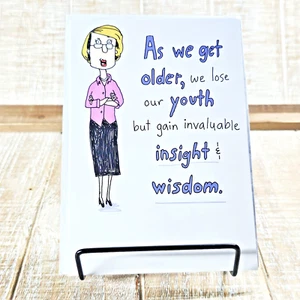 As we get
older, we lose
our youth
but gain invaluable
insight &
wisdom.